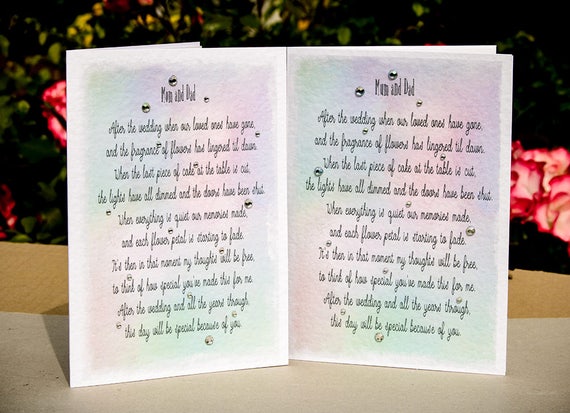 Mum and Dad
After the wedding when our loved ones have gone,
and the fragrance of flowers has lingered til dawn.
When the last piece of cake at the table is cut,
the lights have all dimmed and the doors have been shut.
When everything is quiet our memories made,
and each flower petal is starting to fade.
It's then in that moment my thoughts will be free,
to think of how special you've made this for me.
After the wedding and all the years through,
this day will be special because of you.
Mum and Dad
After the wedding when our loved ones have gone,
and the fragrance of flowers has lingered til dawn.
When the last piece of cake at the table is cut,
the lights have all dimmed and the doors have been shut.
When everything is quiet our memories made,
and each flower petal is starting to fade.
It's then in that moment my thoughts will be free,
to think of how special you've made this for me.
After the wedding and all the years through,
this day will be special because of you.